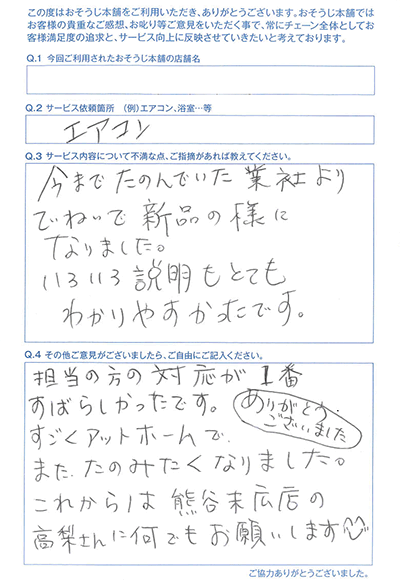 この度はおそうじ本舗をご利用いただき、ありがとうございます。おそうじ本舗では
お客様の貴重なご感想、お叱り等ご意見をいただく事で、常にチェーン全体としてお
客様満足度の追求と、サービス向上に反映させていきたいと考えております。
Q.1 今回ご利用されたおそうじ本舗の店舗名
Q.2 サービス依頼箇所 (例)エアコン、浴室…等
エアコン
Q.3 サービス内容について不満な点、ご指摘があれば教えてください。
今までたのんでいた業社より
でねいで新品の様に
なりました。
いろいろ説明もとても
わかりやすかったです。
Q.4 その他ご意見がございましたら、ご自由にご記入ください。
担当の方の対応が1番
すばらしかったです。
ありがとう
ございました
すごくアットホームで、
また、たのみたくなりました。
これからは熊谷末広店の
高梨さんに何でもお願いします
ご協力ありがとうございました。